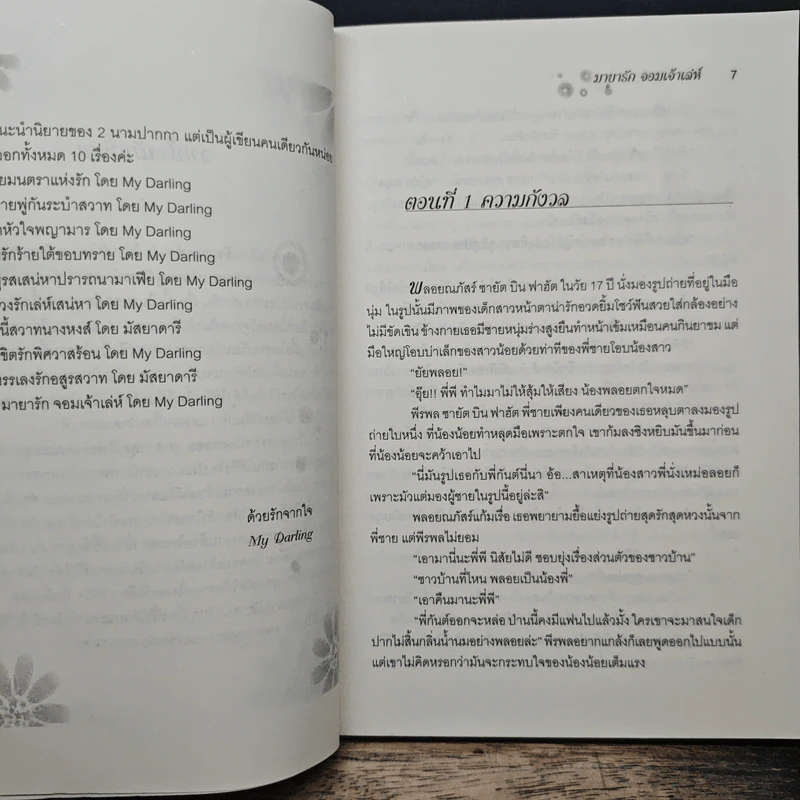 นะนำนิยายของ 2 นามปากกา แต่เป็นผู้เขียนคนเดียวกันหน่อย
ออกทั้งหมด 10 เรื่องค่ะ
ยมนตราแห่งรัก โดย My Darling
ายพู่กันระบำสวาท โดย My Darling
หัวใจพญามาร โดย My Darling
รักร้ายใต้ขอบทราย โดย My Darling
รสเสน่หาปรารถนามาเฟีย โดย My Darling
วงรักเล่ห์เสน่หา โดย My Darling
นี้สวาทนางหงส์ โดย มัสยาดารี
ขิตรักพิศวาสร้อน โดย My Darling
รรเลงรักอสูรสวาท โดย มัสยาดารี
มายารัก จอมเจ้าเล่ห์ โดย My Darling
ด้วยรักจากใจ
My Darling
มายารัก จอมเจ้าเล่ห์ 7
ตอนที่ 1 ความกังวล
พลอยณภัสร์ ซายัต บิน ฟาฮัต ในวัย 17 ปี นั่งมองรูปถ่ายที่อยู่ในมือ
นุ่ม ในรูปนั้นมีภาพของเด็กสาวหน้าตาน่ารักอวดยิ้มโชว์ฟันสวยใส่กล้องอย่าง
ไม่มีขัดเขิน ข้างกายเธอมีชายหนุ่มร่างสูงยืนทำหน้าเข้มเหมือนคนกินยาขม แต่
มือใหญ่โอบบ่าเล็กของสาวน้อยด้วยท่าทีของพี่ชายโอบน้องสาว
“ยัยพลอย!”
“อุ๊ย!! พี่พี ทำไมมาไม่ให้สุ้มให้เสียง น้องพลอยตกใจหมด”
พีรพล ซายัต บิน ฟาฮัต พี่ชายเพียงคนเดียวของเธอหลุบตาลงมองรูป
ถ่ายใบหนึ่ง ที่น้องน้อยทำหลุดมือเพราะตกใจ เขาก้มลงชิงหยิบมันขึ้นมาก่อน
ที่น้องน้อยจะคว้าเอาไป
“นี่มันรูปเธอกับพี่กันต์นี่นา อ้อ...สาเหตุที่น้องสาวพี่นั่งเหม่อลอยก็
เพราะมัวแต่มองผู้ชายในรูปนี้อยู่ล่ะสิ”
พลอยณภัสร์แก้มเรื่อ เธอพยายามยื้อแย่งรูปถ่ายสุดรักสุดหวงนั้นจาก
พี่ชาย แต่พีรพลไม่ยอม
“เอามานี่นะพี่พี นิสัยไม่ดี ชอบยุ่งเรื่องส่วนตัวของชาวบ้าน”
“ชาวบ้านที่ไหน พลอยเป็นน้องพี่”
“เอาคืนมานะพี่พี”
“พี่กันต์ออกจะหล่อ ป่านนี้คงมีแฟนไปแล้วมั้ง ใครเขาจะมาสนใจเด็ก
ปากไม่สิ้นกลิ่นน้ำนมอย่างพลอยล่ะ” พีรพลอยากแกล้งก็เลยพูดออกไปแบบนั้น
แต่เขาไม่คิดหรอกว่ามันจะกระทบใจของน้องน้อยเต็มแรง